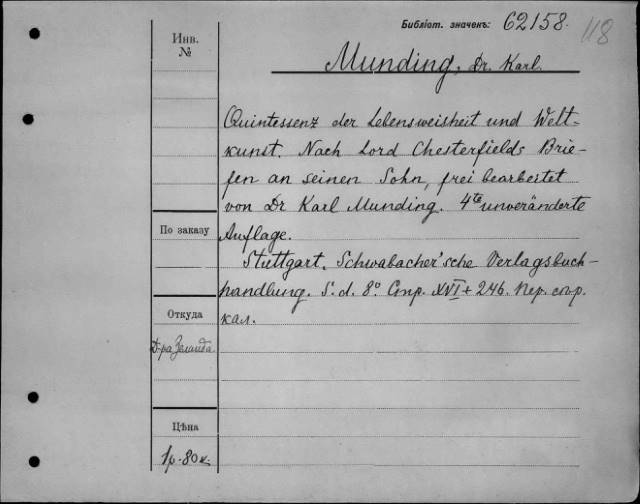 Библіот. значекъ: 62158.
118
Инв.
№
Munding, Dr. Karl.
Quintessenz der Lebensweisheit und Welt-
kunst. Nach Lord Chesterfields Brie-
fen an seinen Sohn, frei bearbeitet
von Dr Karl Munding. 4te unveränderte
Auflage.
Stuttgart. Schwabacher'sche Verlagsbuch-
handlung. S. d. 8° Стр. XVI + 246. Пер.
кал.
По заказу
Откуда
Д-ра
Цѣна
1р. 80 к.